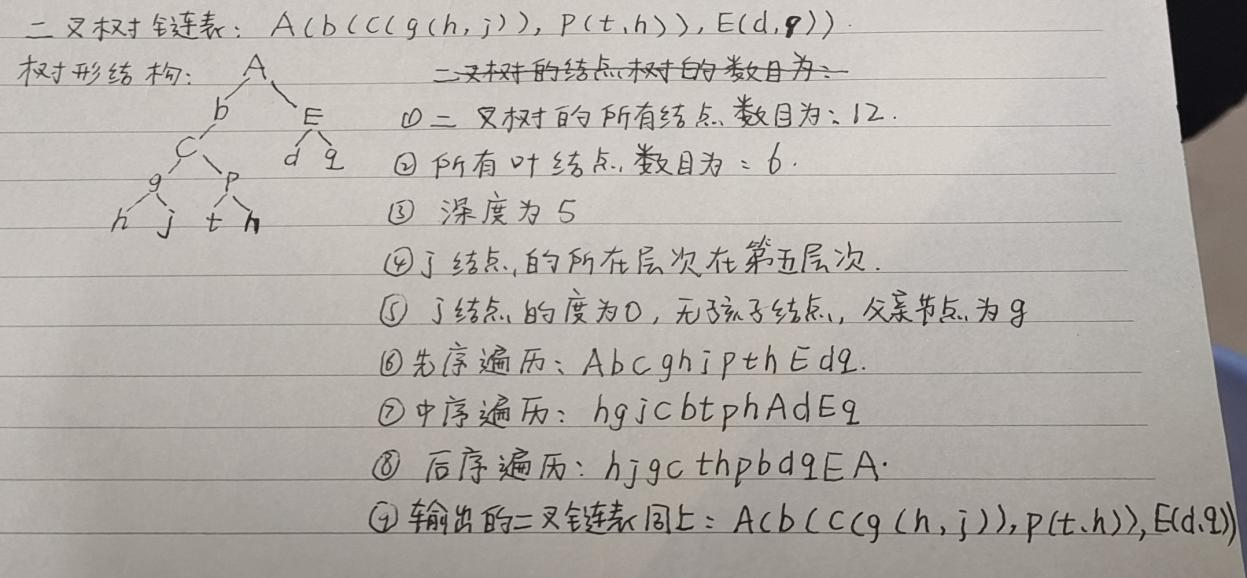 二叉树链表: A(b(C(g(h,j)),P(t,h)),E(d,q)).
树形结构:
二叉树的结点树的数目为:
A
b E
C d q
g P
h j t h
①二叉树的所有结点数目为:12.
②所有叶结点数目为:6.
③深度为5
④j结点的所在层次在第五层次.
⑤j结点的度为0,无孩子结点,父亲节点为g
⑥先序遍历:AbcghjpthEdq.
⑦中序遍历:hgjcbtphAdEq
⑧后序遍历:hjgcthpbdqEA.
⑨输出的二叉链表同上:A(b(C(g(h,j)),P(t,h)),E(d,q))